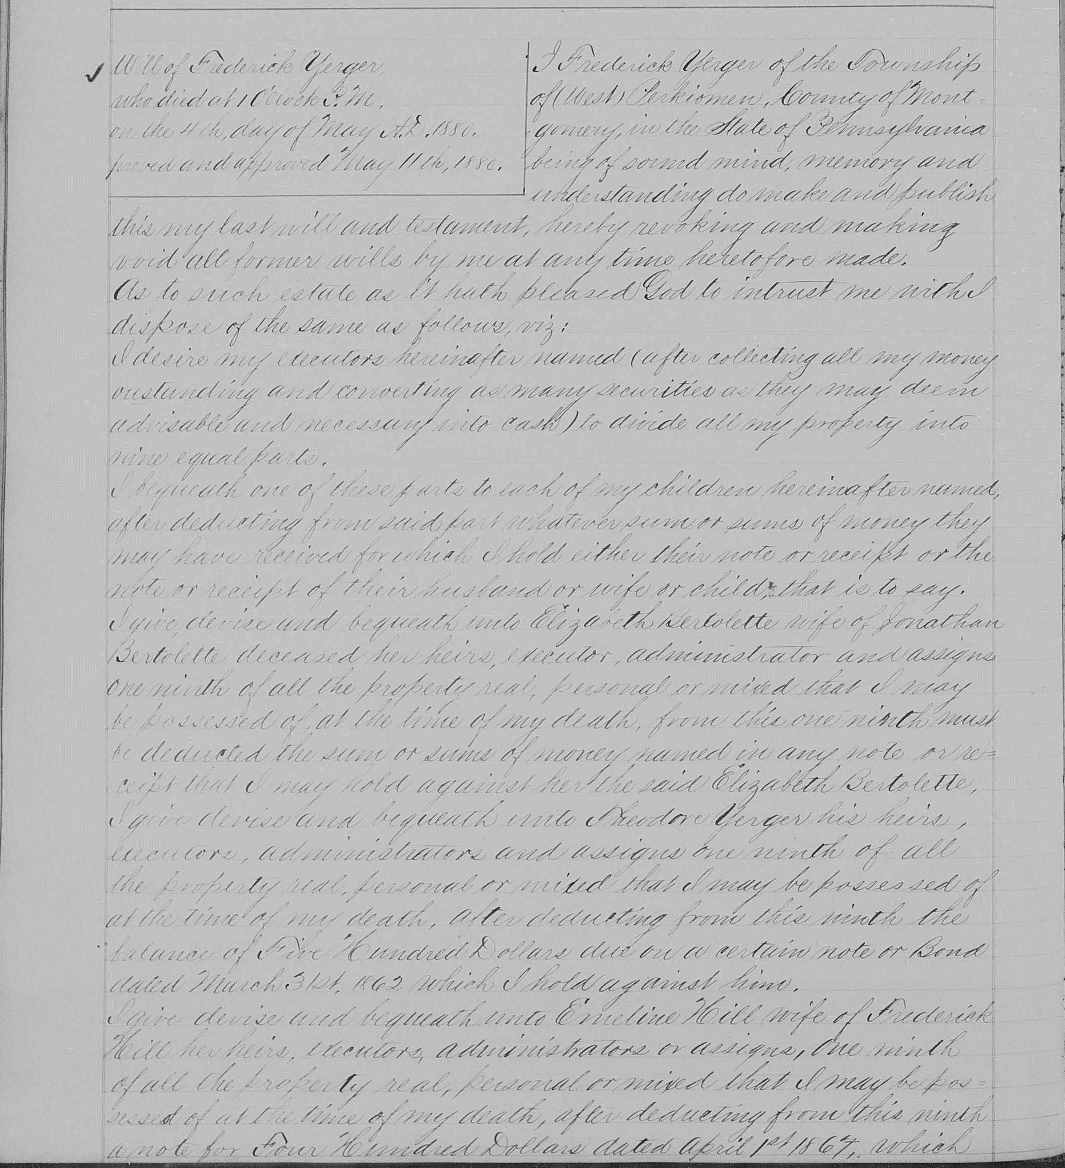 Will of Frederick Yerger
who died at 1 O'clock P.M.
on the 4th, day of May A.D. 1880.
proved and approved May 11th, 1880.
I Frederick Yerger of the Township
of (West) Perkiomen, County of Mont-
gomery, in the State of Pennsylvania
being of sound mind, memory and
understanding do make and publish
this my last will and testament, hereby revoking and making
void all former wills by me at any time heretofore made.
As to such estate as it hath pleased God to intrust me with I
dispose of the same as follows, viz:
I desire my executors hereinafter named (after collecting all my money
oustanding and converting as many securities as they may deem
advisable and necessary into cash) to divide all my property into
nine equal parts.
I bequeath one of these parts to each of my children hereinafter named,
after deducting from said part whatever sum or sums of money they
may have received for which I hold either their note or receipt or the
note or receipt of their husband or wife or child, that is to say.
I give, devise and bequeath unto Elizabeth Bertolette wife of Jonathan
Bertolette deceased, her heirs, executor, administrator and assigns
one ninth of all the property real, personal or mixed that I may
be possessed of, at the time of my death, from this one ninth must
be deducted the sum or sums of money named in any note or re=
ceipt that I may hold against her the said Elizabeth Bertolette,
I give devise and bequeath unto Theodore Yerger his heirs,
executors, administrators and assigns one ninth of all
the property real, personal or mixed that I may be possessed of
at the time of my death, after deducting from this ninth the
balance of Five Hundred Dollars due on a certain note or Bond
dated March 31st, 1862 which I hold against him.
I give devise and bequeath unto Emeline Hill wife of Frederick
Hill her heirs, executors, administrators or assigns, one ninth
of all the property real, personal or mixed that I may be pos=
sessed of at the time of my death, after deducting from this ninth
a note for Four Hundred Dollars dated April 1st 1867, which